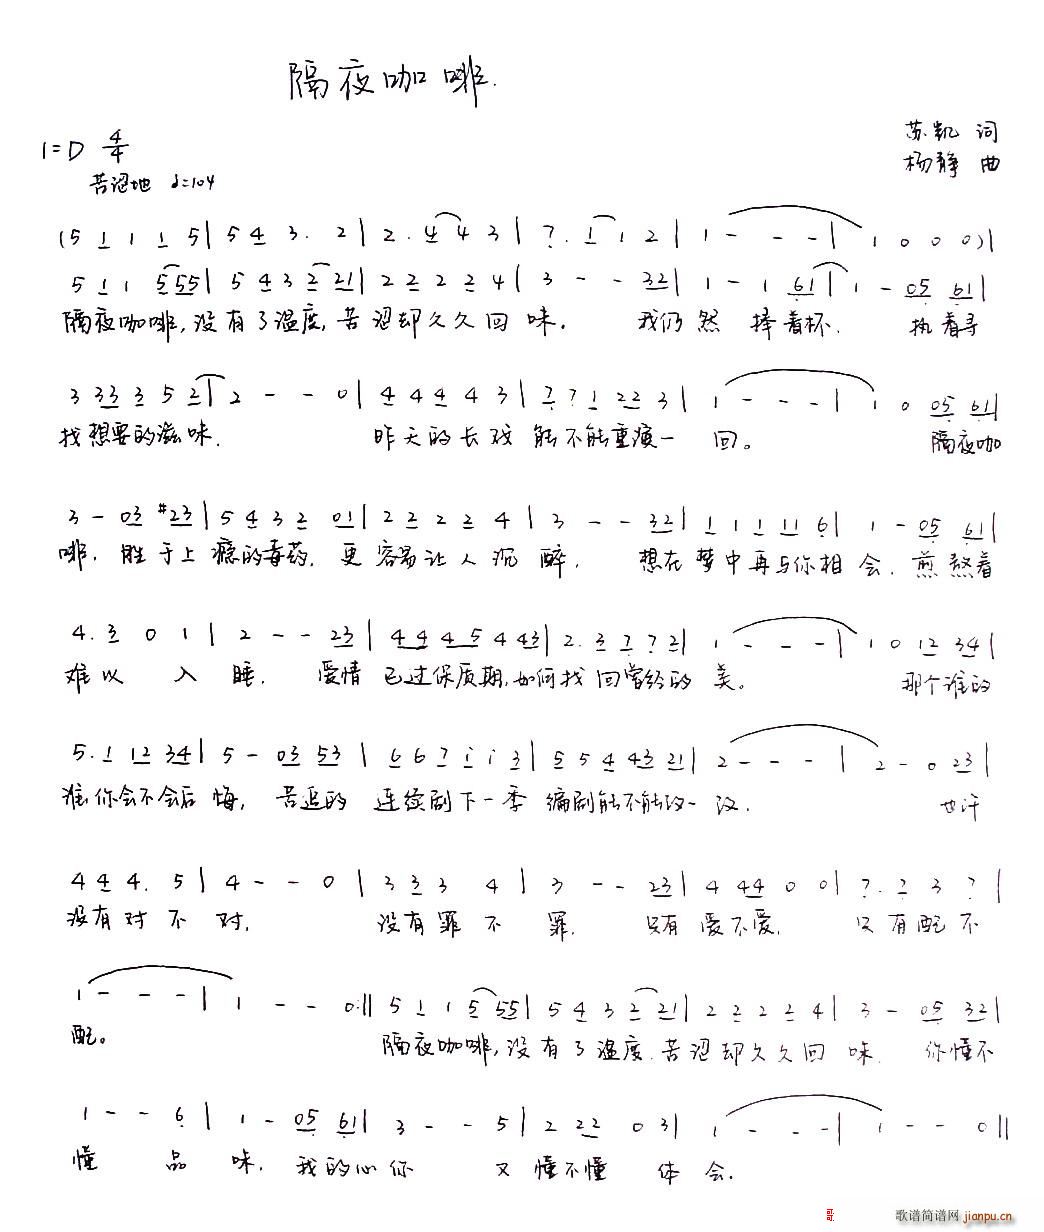 隔夜咖啡.
1=D 4/4
苏凯 词
杨静 曲
苦涩地 ♩=104
(5 1 1 1 5| 5 4 3. 2| 2. 4 4 3| 7. 1 1 2| 1 - - -| 1 0 0 0)|
5 1 1 5 5 5| 5 4 3 2 2 1| 2 2 2 2 4| 3 - - 3 2| 1 - 1 6 1| 1 - 0 5 6 1|
隔夜咖啡,没有了温度,苦涩却久久回味. 我仍然 捧着杯. 执着寻
3 3 3 3 5 2| 2 - - 0| 4 4 4 4 3| 7 7 1 2 2 3| 1 - - -| 1 0 0 5 6 1|
找想要的滋味. 昨天的长戏 能不能重演一 回。 隔夜咖
3 - 0 3 #2 3| 5 4 3 2 0 1| 2 2 2 2 4| 3 - - 3 2| 1 1 1 1 1 6| 1 - 0 5 6 1|
啡, 胜于上瘾的毒药. 更容易让人沉醉, 想在梦中再与你相会. 煎熬着
4. 3 0 1| 2 - - 2 3| 4 4 4 5 4 4 3| 2. 3 7 7 2| 1 - - -| 1 0 1 2 3 4|
难以 入 睡. 爱情 已过保质期,如何找回曾经的 美。 那个谁的
5. 1 1 2 3 4| 5 - 0 3 5 3| 6 6 7 i i 3| 5 5 4 4 3 2 1| 2 - - -| 2 - 0 2 3|
谁你会不会后 悔, 苦追的 连续剧下一季 编剧能不能改一改. 也许
4 4 4. 5| 4 - - 0| 3 3 3 4| 3 - - 2 3| 4 4 4 0 0| 7. 7 3 7|
没有对不对, 没有罪不罪, 只有爱不爱, 只有配不
1 - - -| 1 - - 0:|| 5 1 1 5 5 5| 5 4 3 2 2 1| 2 2 2 2 4| 3 - 0 5 3 2|
配。 隔夜咖啡,没有了温度.苦涩却久久回味. 你懂不
1 - - 6| 1 - 0 5 6 1| 3 - - 5| 2 2 2 0 3| 1 - - -| 1 - - 0||
懂 品 味, 我的心你 又懂不懂 体会.
歌谱简谱网 jianpu.cn